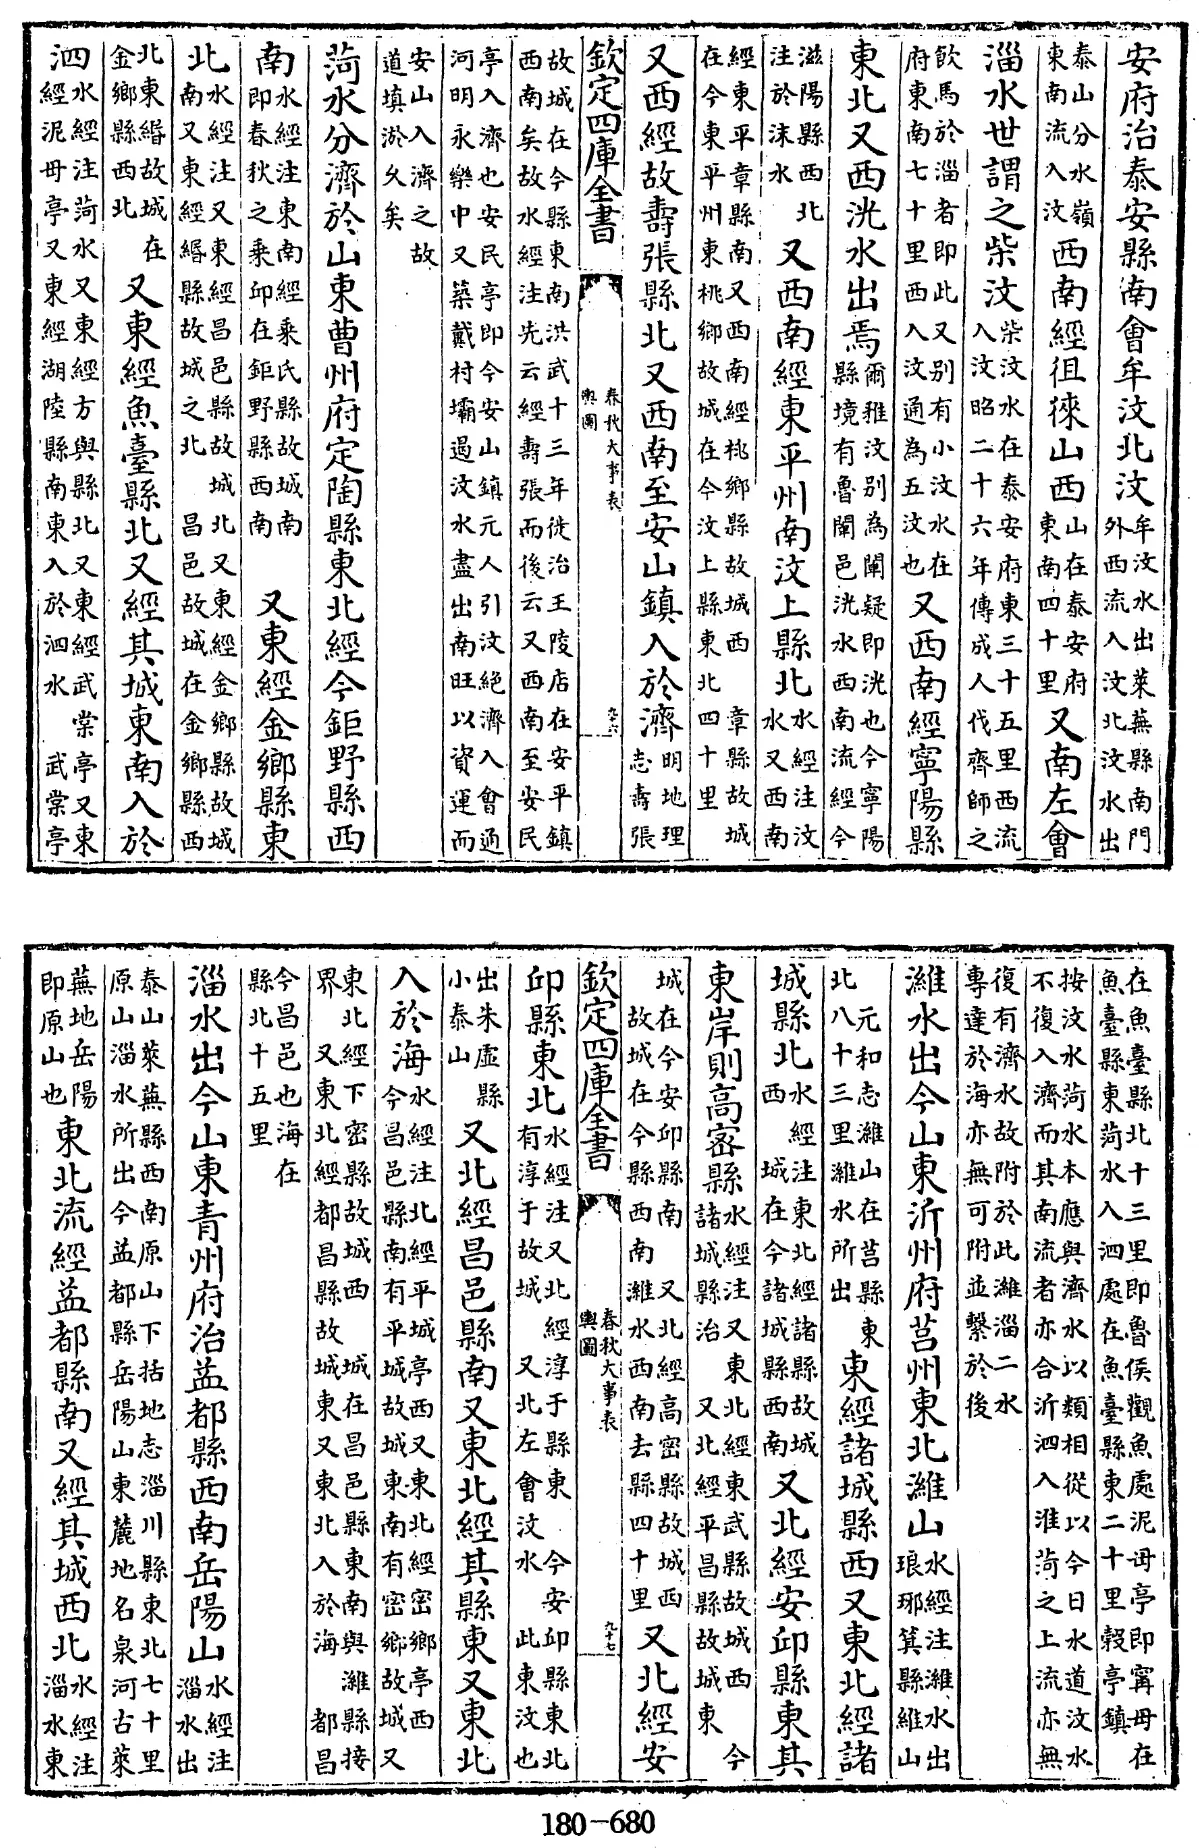 安府治泰安縣南會牟汶北汶牟汶水出萊蕪縣南門外西流入汶北汶水出
泰山分水嶺東南流入汶西南經徂徠山西山在泰安府東南四十里又南左會
淄水世謂之柴汶柴汶水在泰安府東三十五里西流入汶昭二十六年傳成人伐齊師之
飲馬於淄者即此又別有小汶水在府東南七十里西入汶通為五汶也又西南經寧陽縣
東北又西洸水出焉爾雅汶別為闡疑即洸也今寧陽縣境有魯闡邑洸水西南流經今
滋陽縣西北注於洙水又西南經東平州南汶上縣北水經注汶水又西南
經東平章縣南又西南經桃鄉縣故城西章縣故城在今東平州東桃鄉故城在今汶上縣東北四十里
又西經故壽張縣北又西南至安山鎮入於濟明地理志壽張
欽定四庫全書 春秋大事表 輿圖 九十六
故城在今縣東南洪武十三年徙治王陵店在安平鎮西南矣故水經注先云經壽張而後云又西南至安民
亭入濟也安民亭即今安山鎮元人引汶絕濟入會通河明永樂中又築戴村壩遏汶水盡出南旺以資運而
安山入濟之故道填淤久矣
菏水分濟於山東曹州府定陶縣東北經今鉅野縣西
南水經注東南經乘氏縣故城南即春秋之乘邱在鉅野縣西南又東經金鄉縣東
北水經注又東經昌邑縣故城北又東經金鄉縣故城南又東經緡縣故城之北昌邑故城在金鄉縣西
北東緡故城在金鄉縣西北又東經魚臺縣北又經其城東南入於
泗水經注菏水又東經方與縣北又東經武棠亭又東經泥母亭又東經湖陸縣南東入於泗水武棠亭
在魚臺縣北十三里即魯侯觀魚處泥母亭即甯母在魚臺縣東菏水入泗處在魚臺縣東二十里穀亭鎮
按汶水菏水本應與濟水以類相從以今日水道汶水不復入濟而其南流者亦合沂泗入淮菏之上流亦無
復有濟水故附於此濰淄二水專達於海亦無可附並繫於後
濰水出今山東沂州府莒州東北濰山水經注濰水出琅琊箕縣維山
元和志濰山在莒縣東北八十三里濰水所出東經諸城縣西又東北經諸
城縣北水經注東北經諸縣故城西城在今諸城縣西南又北經安邱縣東其
東岸則高密縣水經注又東北經東武縣故城西諸城縣治又北經平昌縣故城東今
城在今安邱縣南又北經高密縣故城西故城在今縣西南濰水西南去縣四十里又北經安
欽定四庫全書 春秋大事表 輿圖 九十七
邱縣東北水經注又北經淳于縣東有淳于故城又北左會汶水今安邱縣東北此東汶也
出朱虛縣小泰山又北經昌邑縣南又東北經其縣東又東北
入於海水經注北經平城亭西又東北經密鄉亭西今昌邑縣南有平城故城東東南有密鄉故城又
東北經下密縣故城西城在昌邑縣東南與濰縣接界又東北經都昌縣故城東又東北入於海都昌
今昌邑也海在縣北十五里
淄水出今山東青州府治益都縣西南岳陽山水經注淄水出
泰山萊蕪縣西南原山下括地志淄川縣東北七十里原山淄水所出今益都縣岳陽山東麓地名泉河古萊
蕪地岳陽即原山也東北流經益都縣南又經其城西北水經注淄水東
180-680